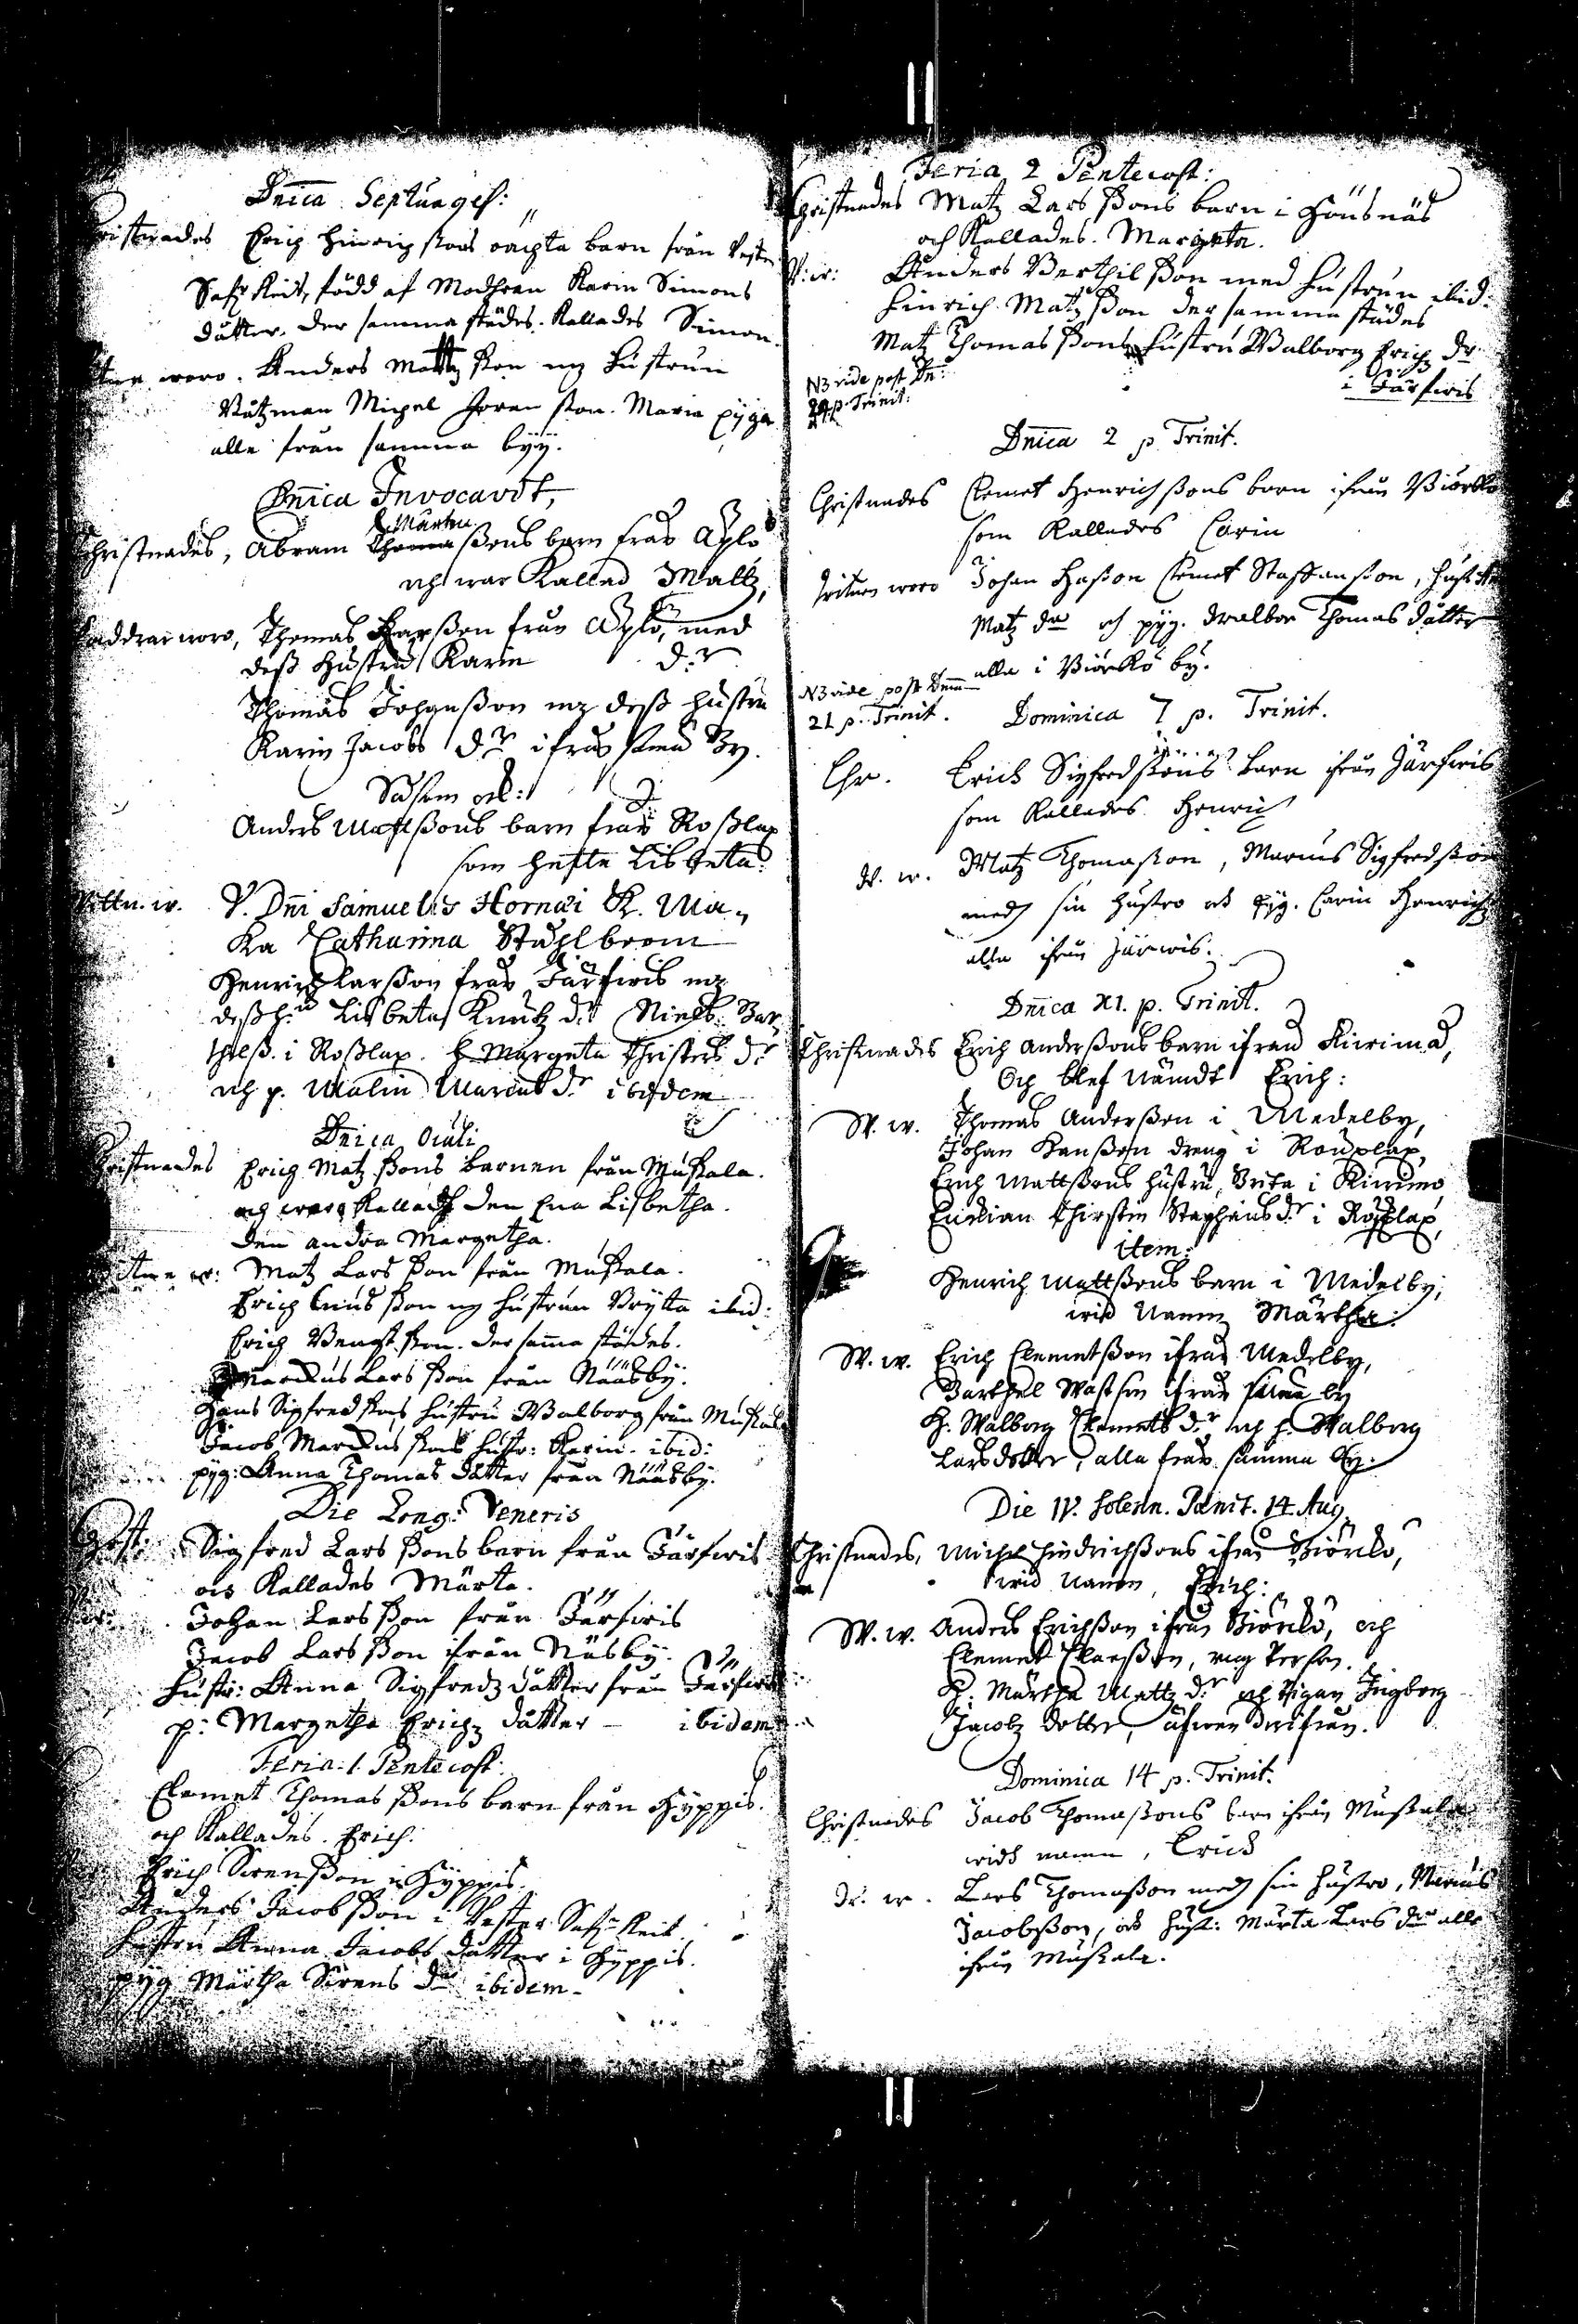 Dnica Septuages:
Christnades Erich Hinrichssons oächta barn från Vester
Sahlkeit, född af Modhren Karin Simons
dåtter. der samma städes. Kallades Simon.
woro. Anders Mattzson mz Hustrun
Michel Joranson. Maria pyga
alle från samma byy.
Dnica Invocavit,
Mårten
Christnades, Abram Thomassons barn från Aylö
och war Kallad Mattz,
Faddrar woro, Thomas Larsson från Aylö, med
dess Hustru Karin d:r
Thomas Johansson mz dess hustru
Karin Jacobs d:r ifrån sama By.
Såsom ock:
Anders Mattssons barn från Rosslax
som heette Lisbeta:
Vittn. w. V. Dni Samuelis Hornæi K. Ma-
ka Catharina Stahlbrom
Henrich Larsson från Järfwis mz
dess h:u Lisbeta Knutz d:r Niels Bar-
thelss. i Rosslax. h. Margeta Christers d:r
och p. Malin Marcus d:r ibidem
Dnica Oculi
Christnades Erich Matz ssons barnen från Muskala.
och woro Kallade den Ena Lisbetha.
den andra Margetha.
w: Matz Lars sson från Muskala.
Erich Knus sson mz hustrun Brytta ibid:
Erich Bengt sson. der sama städes.
Marckus Lars sson från Nääsby.
Hans Sigfredssons hustru Walborg från Muskala
Jacob Marckus ssons hustr: Karin. ibid:
pyg: Anna Thomas dåtter från Nääsby.
Die Long: Veneris
Christ: Sigfred Lars ssons barn från Järfwis
och Kallades Märta.
Johan Lars sson från Järfwis
Jacob Lars sson ifrån Näsby.
Hustr: Anna Sigfredz dåtter från Järfwis
p: Margetha Erichz dåtter - ibidem
Feria 1. Pentecost:
Clemet Thomas ssons barn från Hyppis.
och Kallades. Erich.
Erich Swensson i Hyppis.
Anders Jacob sson i Vester Sahlkeit.
Hustru Anna Jacobs dåtter i Hyppis.
pyg Märtha Swens dr ibidem-
Feria 2 Pentecost:
Christnades Matz Lars ssons barn i Hönsnäs
och Kallades. Margeta.
W: w: Anders Berthilsson med hustrun ibid:
Hinrich Matz sson der samma städes
Matz Thomas ssons hustru Walborg Erichz dr
i Järfwis
NB vide post Dn:
p. Trinit:
Dnica 2 p. Trinit.
Christnades Clemet Henrichssons barn ifrån Biörkö
som Kallades Carin
witnen woro Johan Hasson Clemet Staffansson, hust
Matz dr och pyg. Walbor Thomas dåtter
alla i Biörkö by.
NB vide post Dnn
21 p. Trinit.
Dominica 7 p. Trinit.
Chr. Erich Sigfredssons barn ifrån Järfwis
som Kallades Henrich
W. w. Matz Thomasson, Marcus Sigfredsson
medh sin hustro och pyg. Carin Henrichz
alla ifrån Järwis.
Dnica XI. p. Trinit.
Christnades Erich Anderssons barn ifrån Kivimå,
Och blef nämdt Erich:
W. w. Thomas Andersson i Medelby,
Johan Hansson dreng i Rosslax,
Erich Mattssons hustru, Brita i Kivimo,
Pickian Chirstin Staphans d:r i Rosslax,
item:
Henrich Mattssons barn i Medelby;
wid namn Märtha:
W. w. Erich Clemetsson ifrån Medelby,
Barthel Matsson ifrån sama by
H. Walborg Clemets d:r, och h. Walborg
Larsdotter, alla från samma by.
Die IV. solenn. Pænit. 14 Aug.
Christnades, Michel Hindrichssons ifrån Biörkö,
wid namn, Erich:
W. w. Anders Erichsson ifrån Biörkö, och
Clemet Claesson, ung Person.
H. Märtha Mattz d:r och Pigan Ingborg
Jacobz dotter, äfwen derifrån.
Dominica 14 p. Trinit.
Christnades Jacob Thomassons barn ifrån Muskala
widh namn, Erich
W. w. Lars Thomasson medh sin hustro, Marcus
Jacobsson, och hust: Märta Lars dr alle
ifrån Muskala.